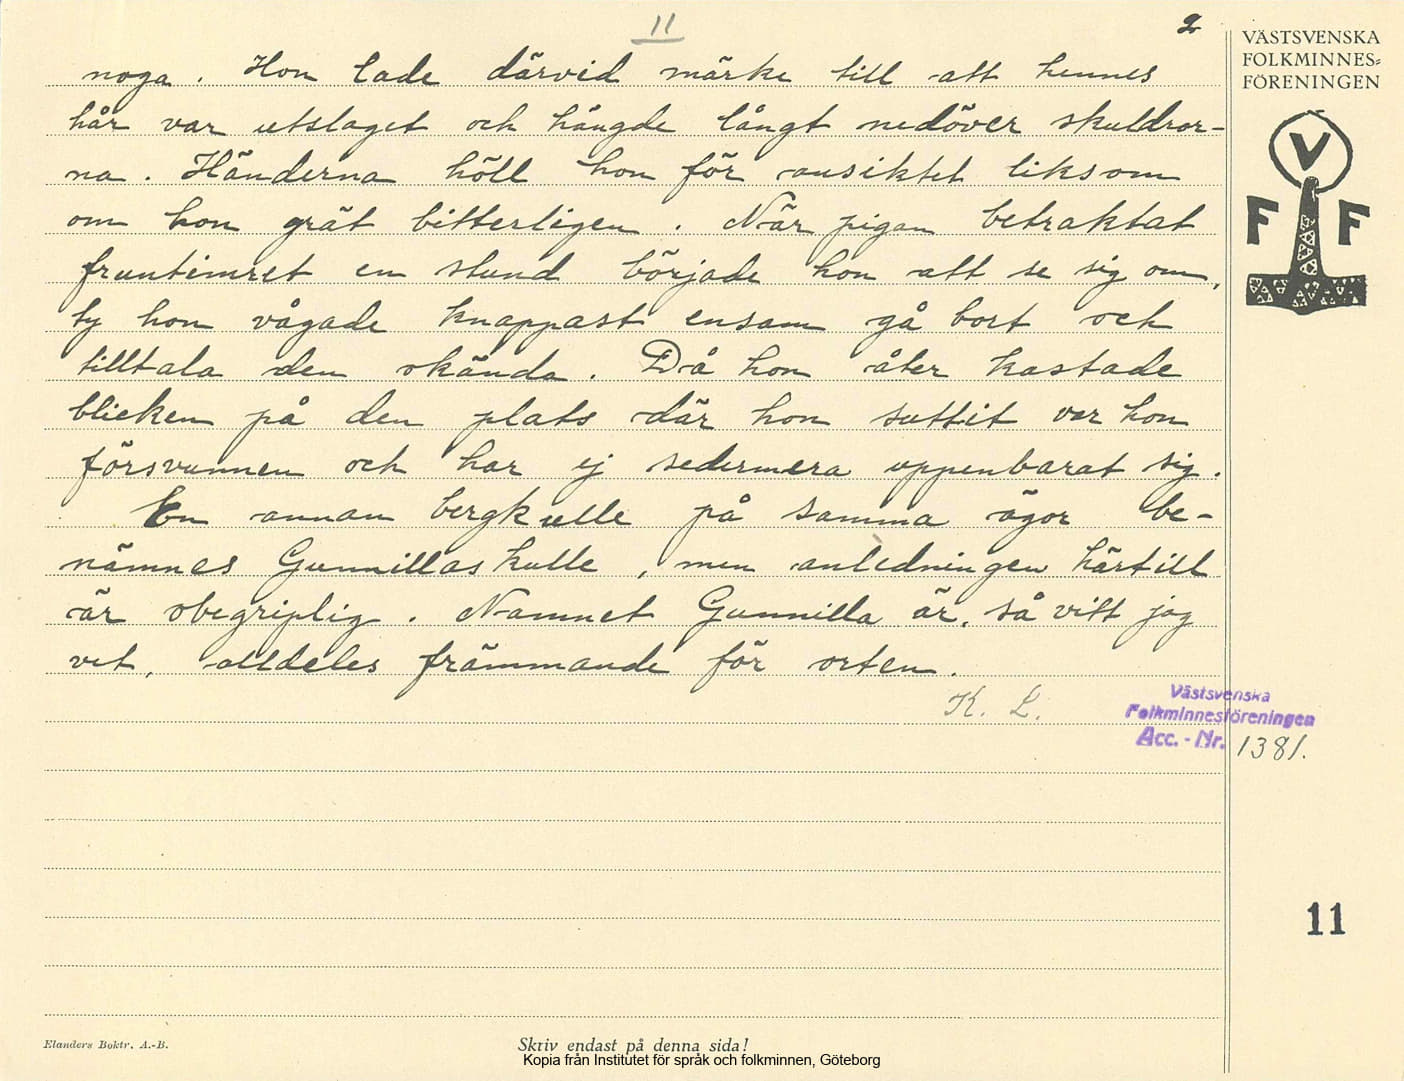 11
2
VÄSTSVENSKA
FOLKMINNES=
FÖRENINGEN
V
F F
noga. Hon lade därvid märke till att hennes
hår var utslaget och hängde långt nedöver skuldror-
na. Händerna höll hon för ansiktet liksom
om hon grät bitterligen. När pigan betraktat
fruntimret en stund började hon att se sig om,
ty hon vågade knappast ensam gå bort och
tilltala den okända. Då hon åter kastade
blicken på den plats där hon suttit var hon
försvunnen och har ej sedermera uppenbarat sig.
En annan bergkulle på samma ägor be-
nämnes Gunnillaskulle, men anledningen härtill
är obegriplig. Namnet Gunnilla är, så vitt jag
vet, alldeles främmande för orten.
K. L.
Västsvenska
Folkminnesföreningen
Acc. - Nr. 1381.
11
Elanders Boktr. A.-B.
Skriv endast på denna sida!
Kopia från Institutet för språk och folkminnen, Göteborg